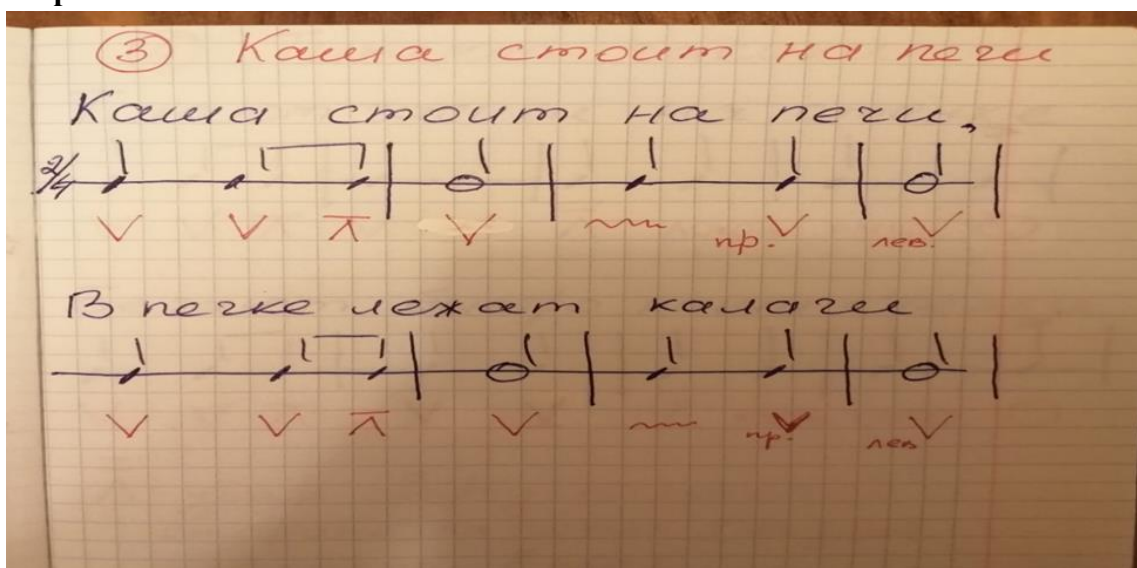 ③ Каша стоит на печи
Каша стоит на печи,
2/4
пр. лев.
В печке лежат калачи
пр. лев